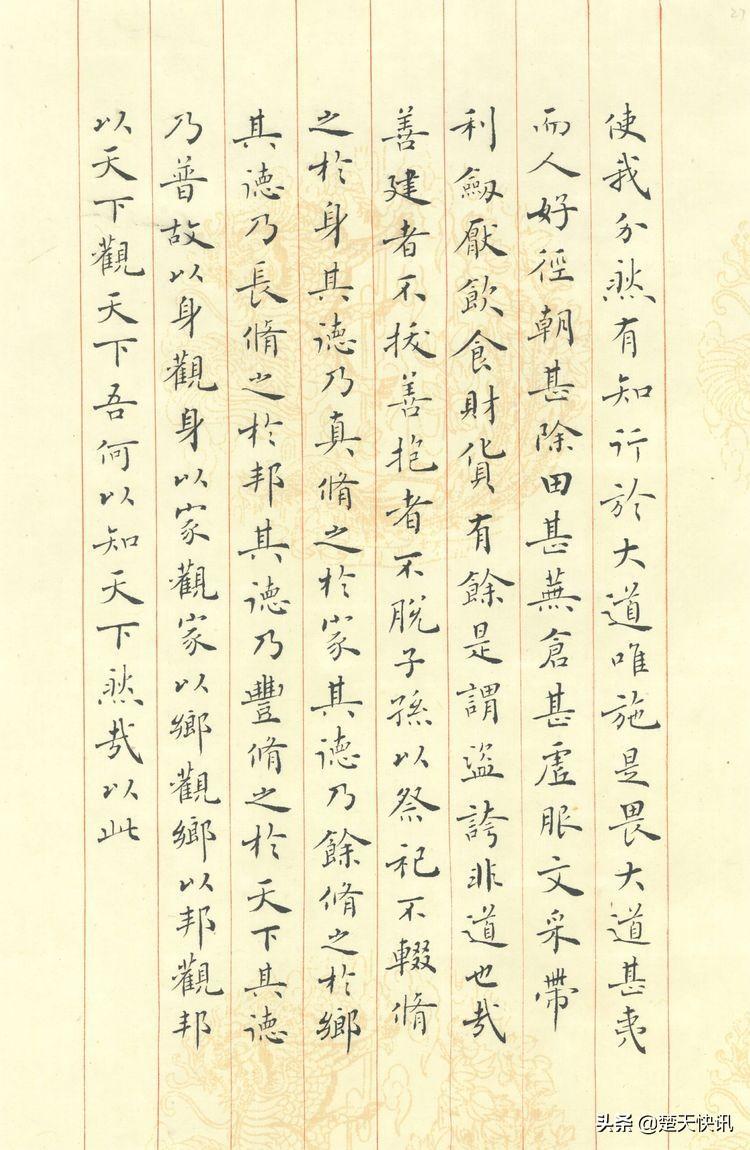 27
使我介然有知行於大道唯施是畏大道甚夷
而人好徑朝甚除田甚蕪倉甚虛服文采帶
利劒厭飲食財貨有餘是謂盜誇非道也哉
善建者不拔善抱者不脫子孫以祭祀不輟脩
之於身其德乃真脩之於家其德乃餘脩之於鄉
其德乃長脩之於邦其德乃豐脩之於天下其德
乃普故以身觀身以家觀家以鄉觀鄉以邦觀邦
以天下觀天下吾何以知天下然哉以此
头条 @楚天快讯